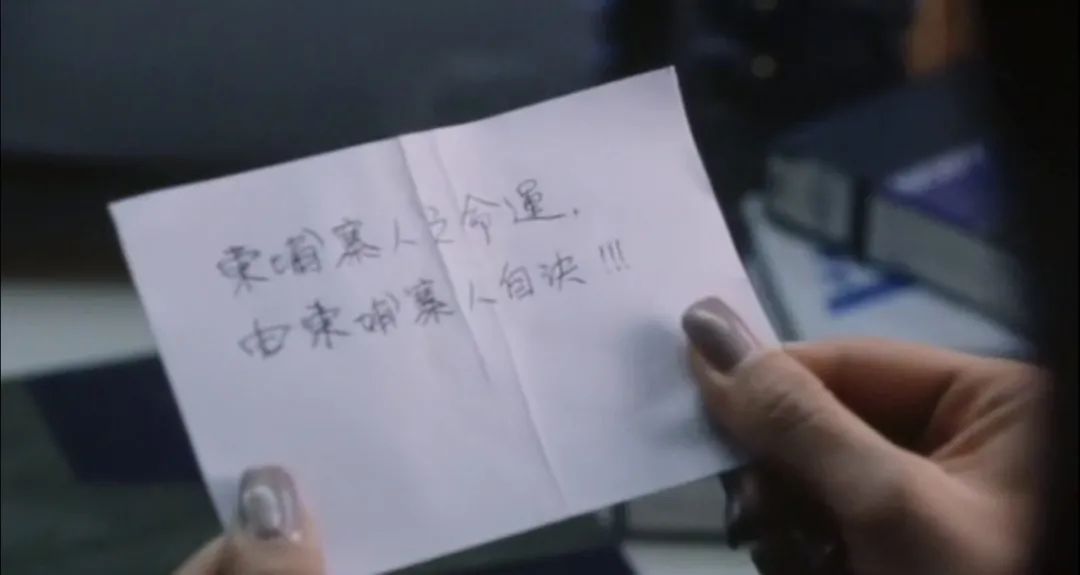 柬埔寨人之命運,
由柬埔寨人自決!!!